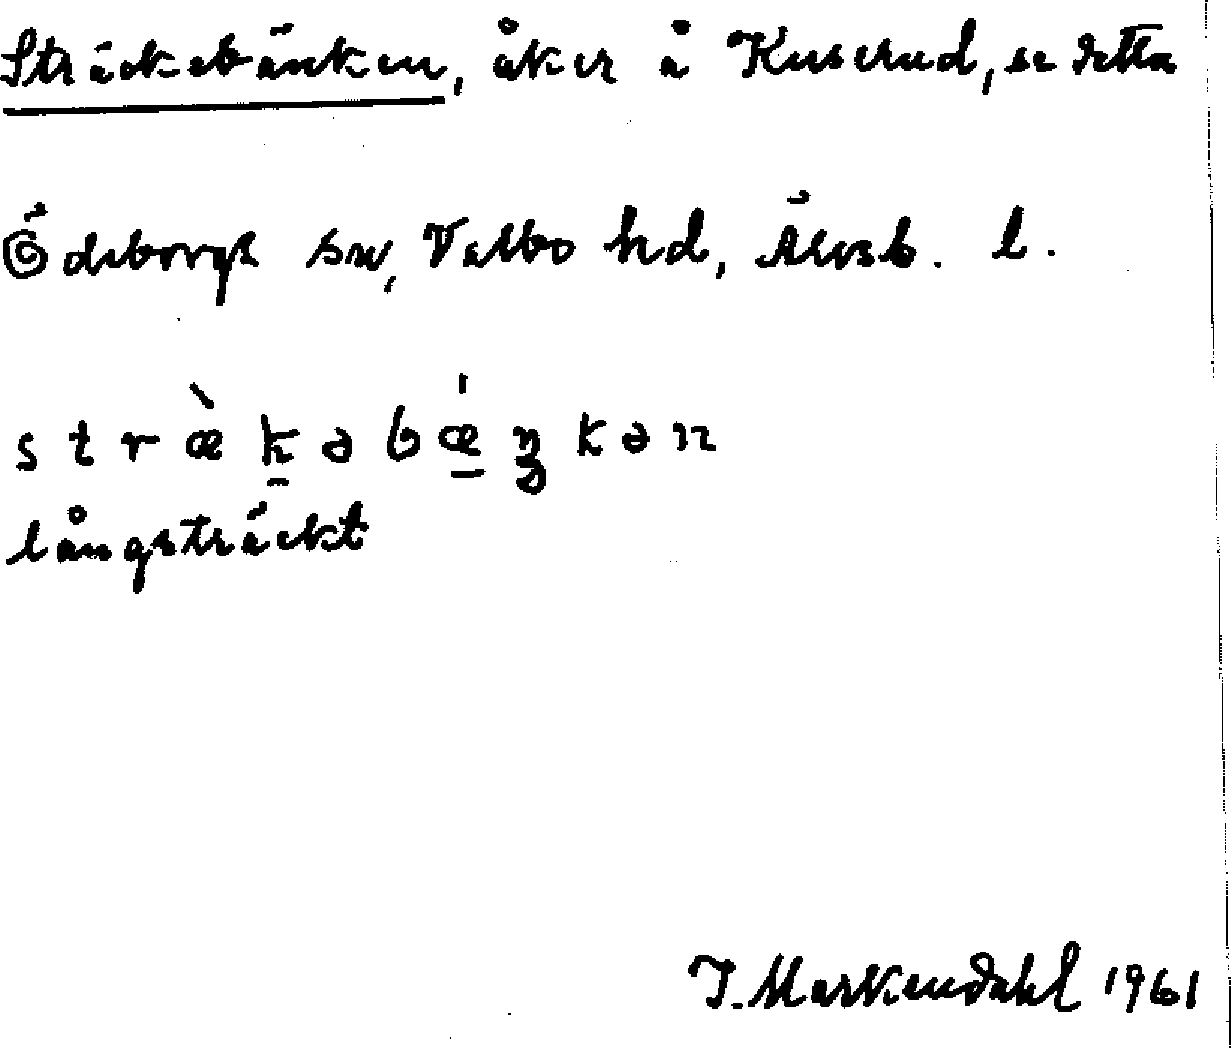 Sträckebänken, åker å Kuserud, se detta
Ödeborgs sn, Valbo hd, Älvsb. l.
s t r æ̀ k̠ ə b ǽ̠ ŋ k ə n
långsträckt
J. Markendahl 1961